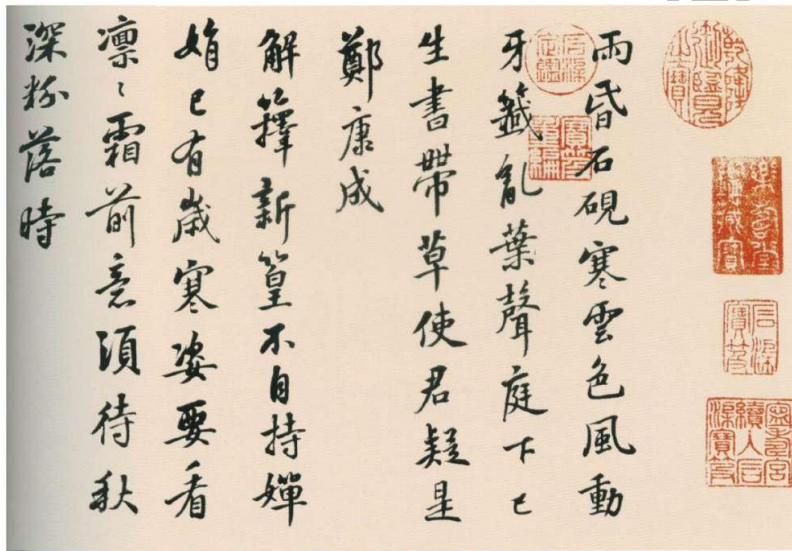 雨昏石硯寒雲色風動
牙籤亂葉聲庭下已
生書帶草使君疑是
鄭康成
解籜新篁不自持嬋
娟已有歲寒姿要看
凜〻霜前意須待秋
深粉落時